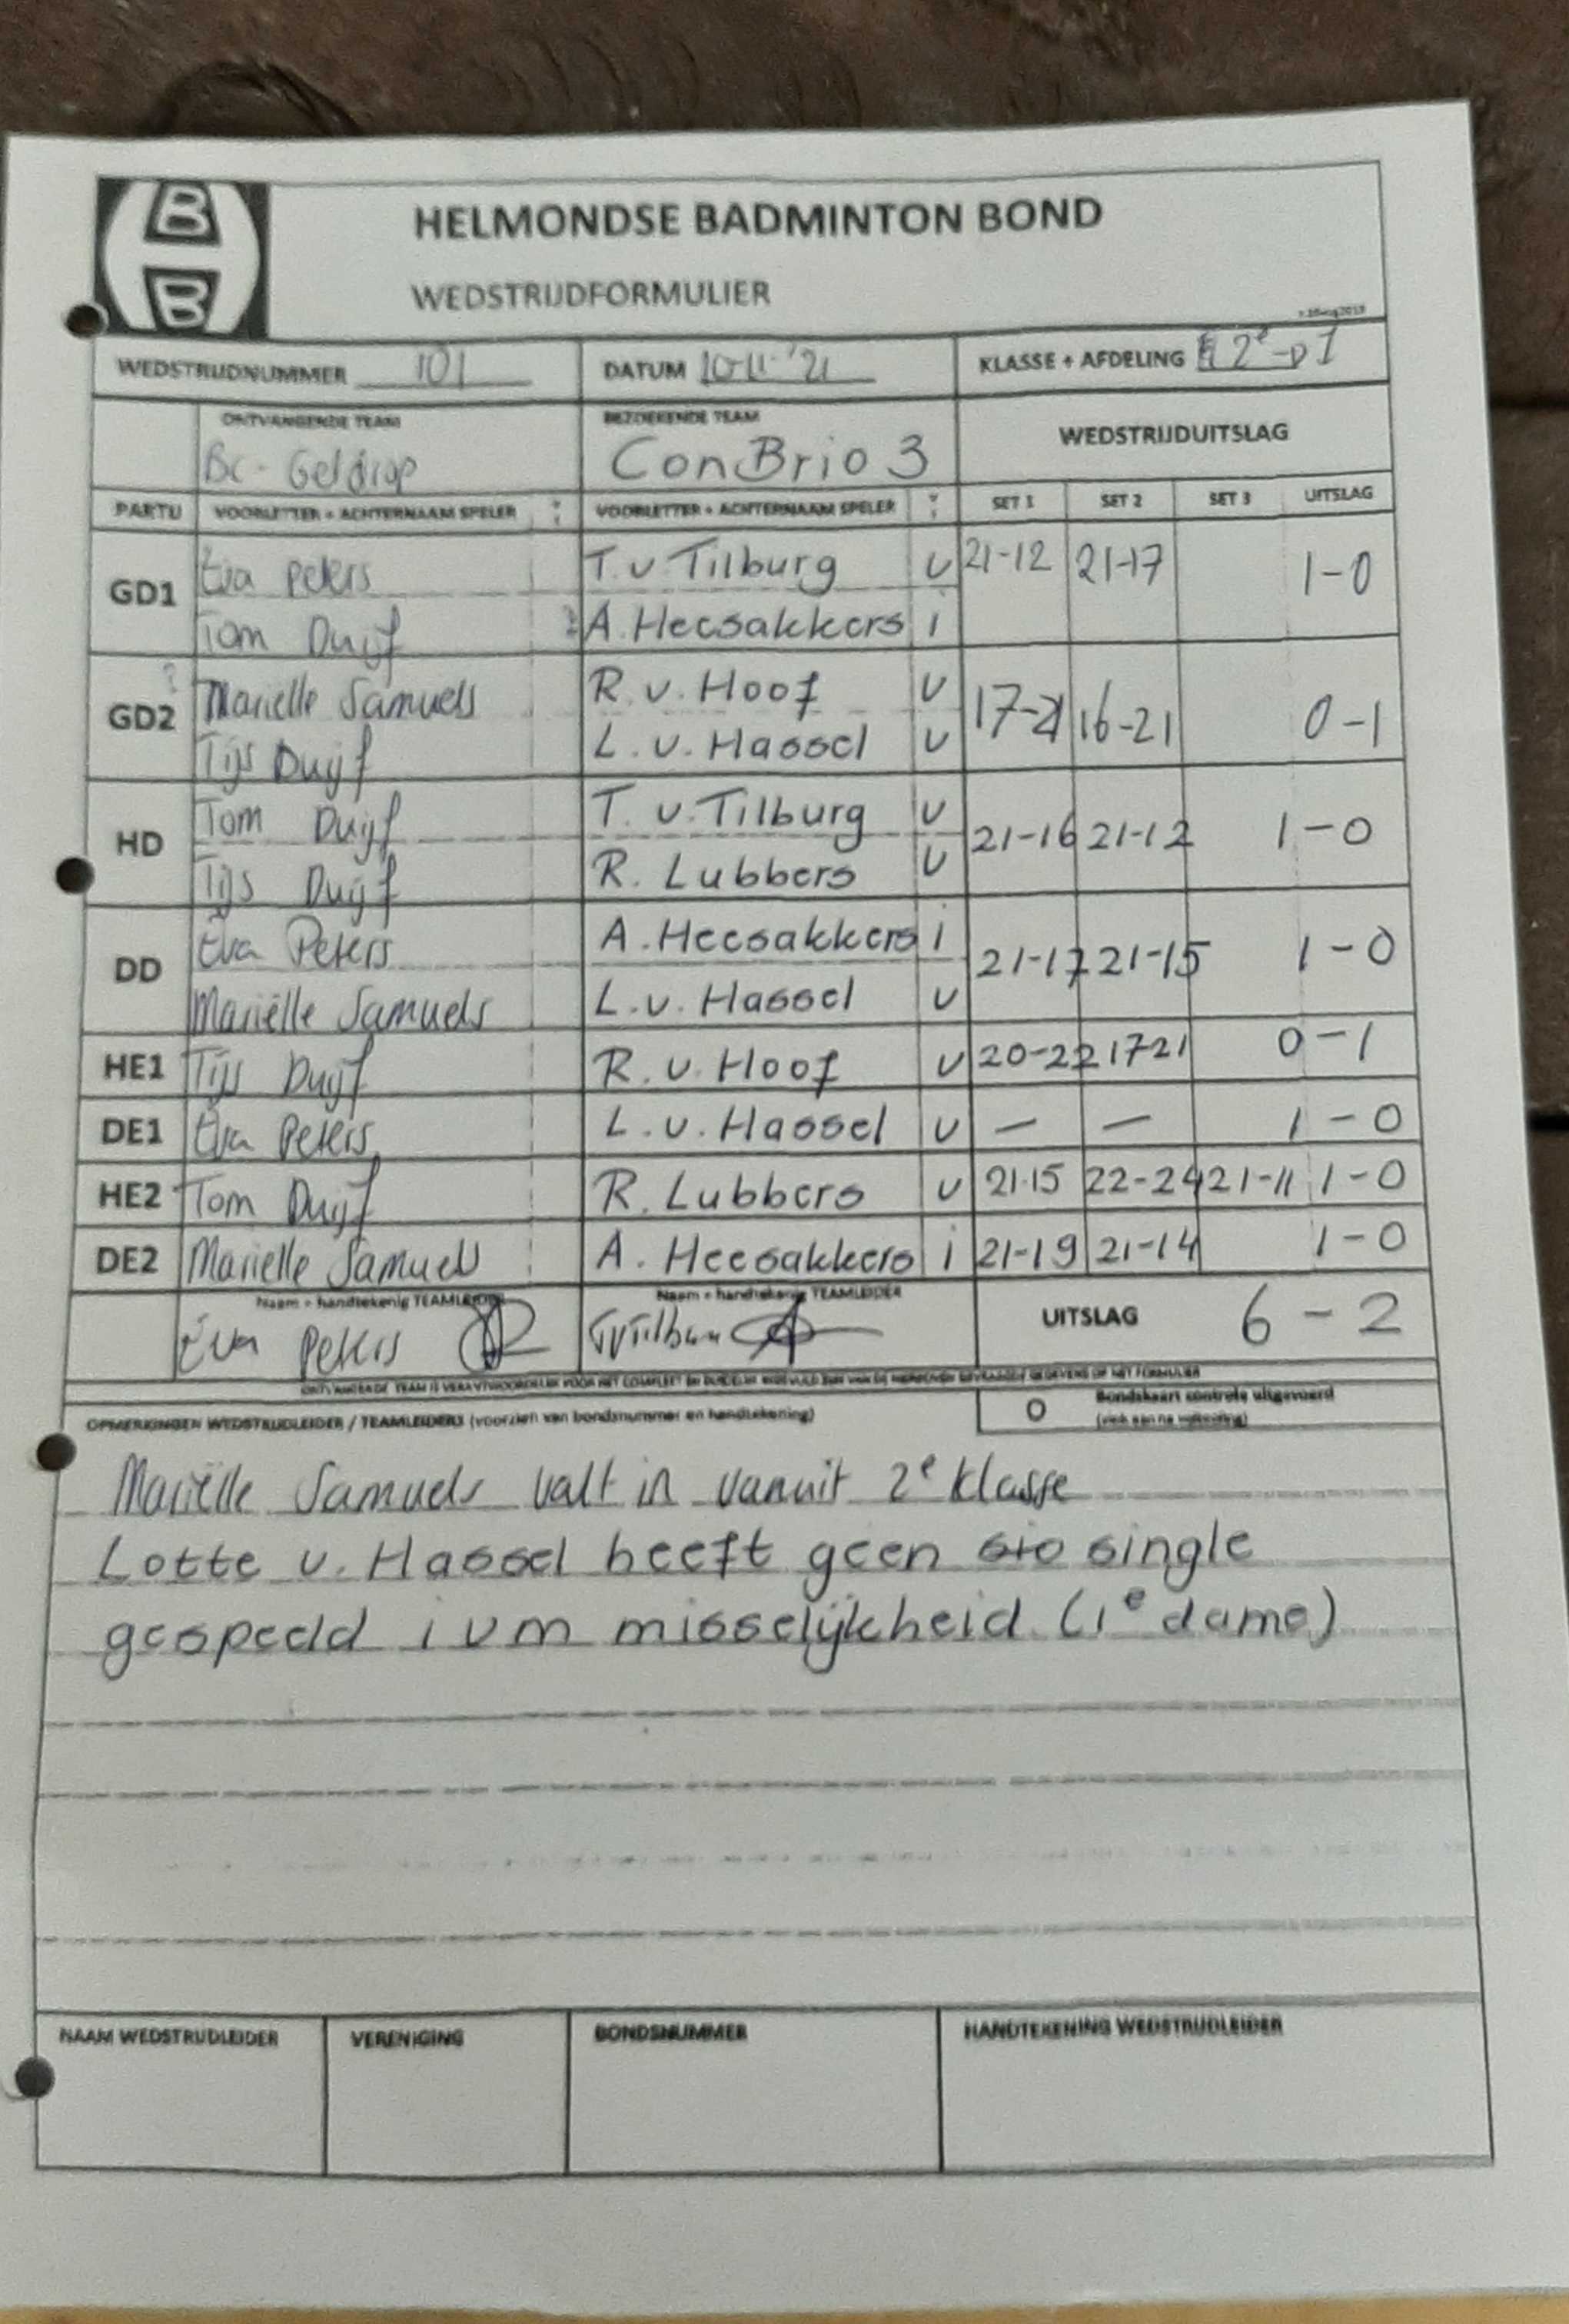 B
B
HELMONDSE BADMINTON BOND
WEDSTRIJDFORMULIER
WEDSTRIJDNUMMER 101 DATUM 10-11-'21 KLASSE + AFDELING 2e
ONTVANGENDE TEAM BEZOEKENDE TEAM WEDSTRIJDUITSLAG
Bc-Geldrop ConBrio 3
PARTIJ VOORLETTER + ACHTERNAAM SPELER VOORLETTER + ACHTERNAAM SPELER SET 1 SET 2 SET 3 UITSLAG
GD1 Eva Peters T. v Tilburg v 21-12 21-17 1-0
Tom Duijf A. Heesakkers i
GD2 Mariëlle Samuels R. v. Hoof v 17-21 16-21 0-1
Tijs Duijf L. v. Hassel v
HD Tom Duijf T. v. Tilburg v 21-16 21-12 1-0
Tijs Duijf R. Lubbers v
DD Eva Peters A. Heesakkers i 21-17 21-15 1-0
Mariëlle Samuels L. v. Hassel v
HE1 Tijs Duijf R. v. Hoof v 20-22 17-21 0-1
DE1 Eva Peters L. v. Hassel v — — 1-0
HE2 Tom Duijf R. Lubbers v 21-15 22-24 21-11 1-0
DE2 Mariëlle Samuels A. Heesakkers i 21-19 21-14 1-0
Naam + handtekenig TEAMLEIDER Naam + handtekenig TEAMLEIDER UITSLAG 6-2
Eva Peters TvTilburg
ONTVANGENDE TEAM IS VERANTWOORDELIJK VOOR HET COMPLEET EN DUIDELIJK INGEVULD ZIJN VAN DE GEVRAAGDE GEGEVENS OP HET FORMULIER
OPMERKINGEN WEDSTRIJDLEIDER / TEAMLEIDERS (voorzien van bondsnummer en handtekening) O Bondskaart controle uitgevoerd
Mariëlle Samuels valt in vanuit 2e klasse
Lotte v. Hassel heeft geen single
gespeeld i v m misselijkheid (1e dame)
NAAM WEDSTRIJDLEIDER VERENIGING BONDSNUMMER HANDTEKENING WEDSTRIJDLEIDER